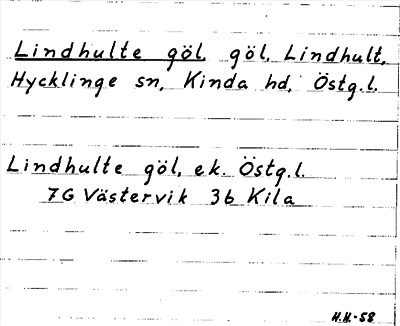 Lindhulte göl, göl, Lindhult,
Hycklinge sn, Kinda hd, Östg.l.
Lindhulte göl, ek. Östg.l.
7G Västervik 3b Kila
H.H.-58